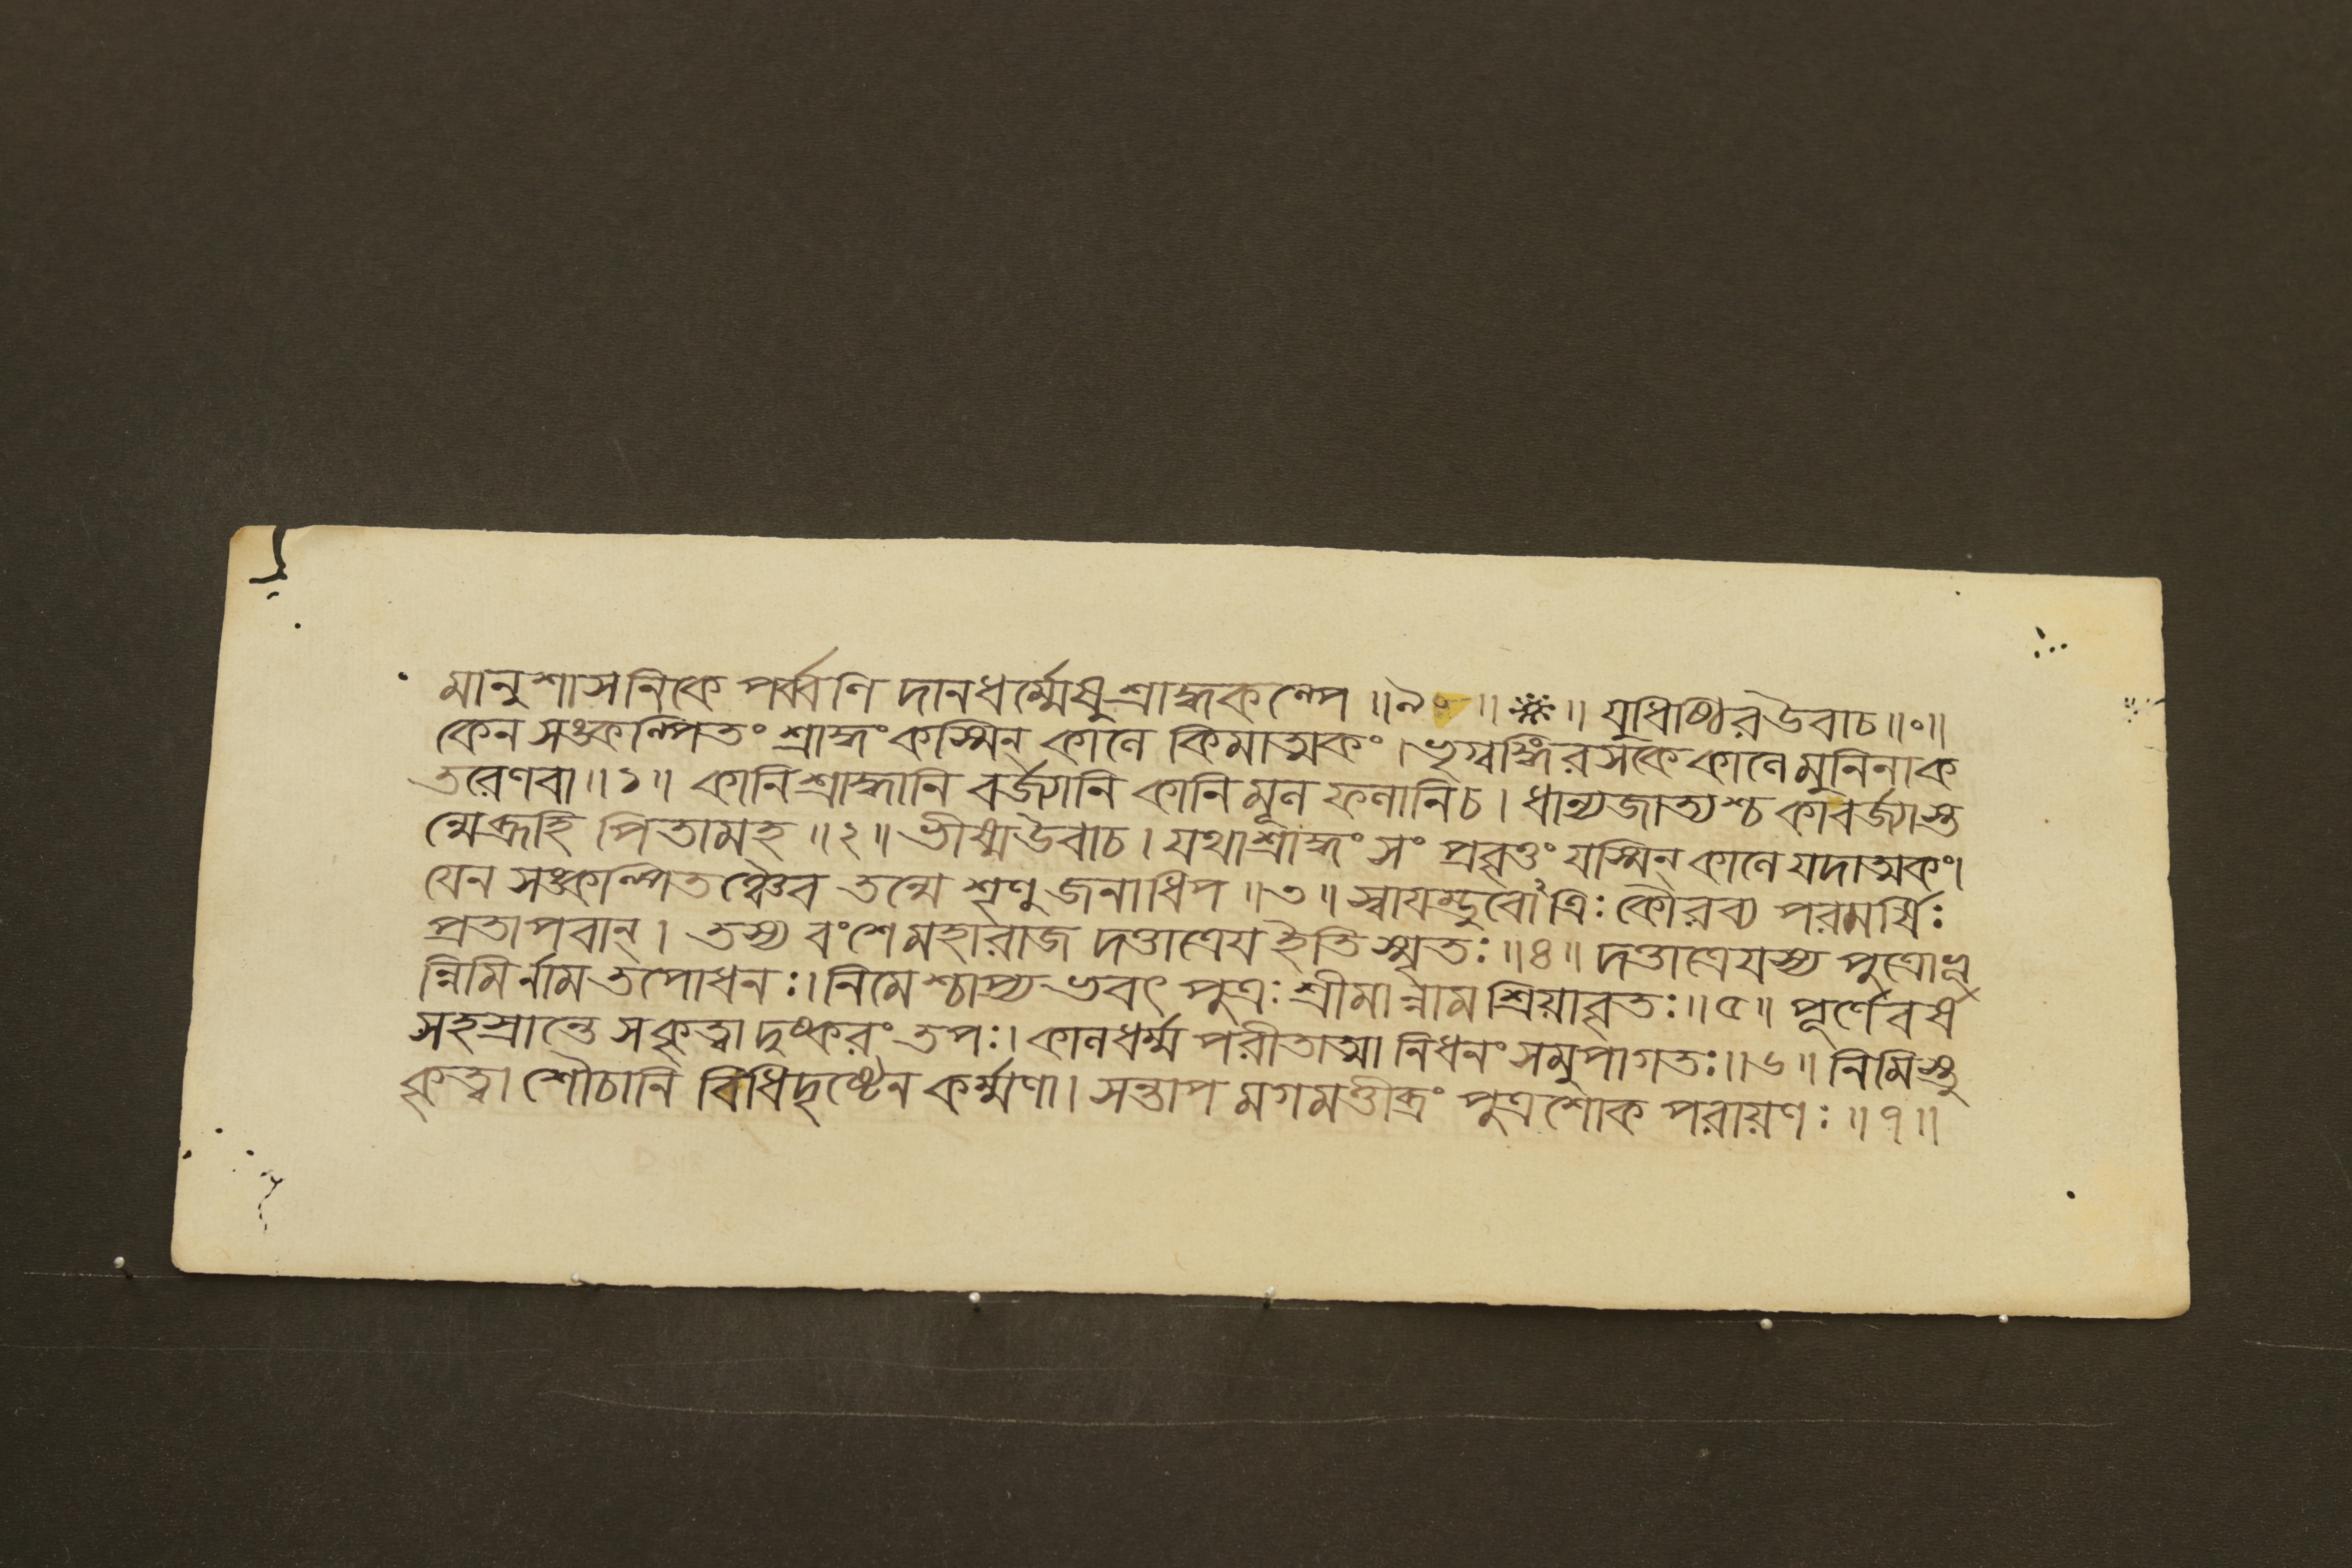 মানুশাসনিকে পর্ব্বণি দানধর্ম্মেষু শ্রাদ্ধকল্পে ॥৯০॥ ※ ॥ যুধিষ্ঠির উবাচ ॥০॥
কেন সঙ্কল্পিতং শ্রাদ্ধং কস্মিন্ কালে কিমাত্মকং । ভৃগ্বঙ্গিরসকে কালে মুনিনা ক
তরেণ বা ॥১॥ কানি শ্রাদ্ধানি বর্জ্যানি কানি মূল ফলানি চ । ধান্যজাত্যশ্চ কা বর্জ্যাস্ত
ন্মে ব্রূহি পিতামহ ॥২॥ ভীষ্ম উবাচ । যথা শ্রাদ্ধং সং প্রবৃত্তং যস্মিন্ কালে যদাত্মকং।
যেন সঙ্কল্পিতঞ্চৈব তন্মে শৃণু জনাধিপ ॥৩॥ স্বায়ম্ভুবোঽত্রিঃ কৌরব্য পরমর্ষিঃ
প্রতাপবান্ । তস্য বংশে মহারাজ দত্তাত্রেয় ইতি স্মৃতঃ ॥৪॥ দত্তাত্রেয়স্য পুত্রোভূ
ন্নিমির্নাম তপোধনঃ । নিমেশ্চাপ্যভবৎ পুত্রঃ শ্রীমান্নাম শ্রিয়াবৃতঃ ॥৫॥ পূর্ণে বর্ষ
সহস্রান্তে স কৃত্বা দুষ্করং তপঃ । কালধর্ম্ম পরীতাত্মা নিধনং সমুপাগতঃ ॥৬॥ নিমিস্তু
কৃত্বা শৌচানি বিধিদৃষ্টেন কর্ম্মণা । সন্তাপ মগমত্তীব্রং পুত্রশোক পরায়ণঃ ॥৭॥